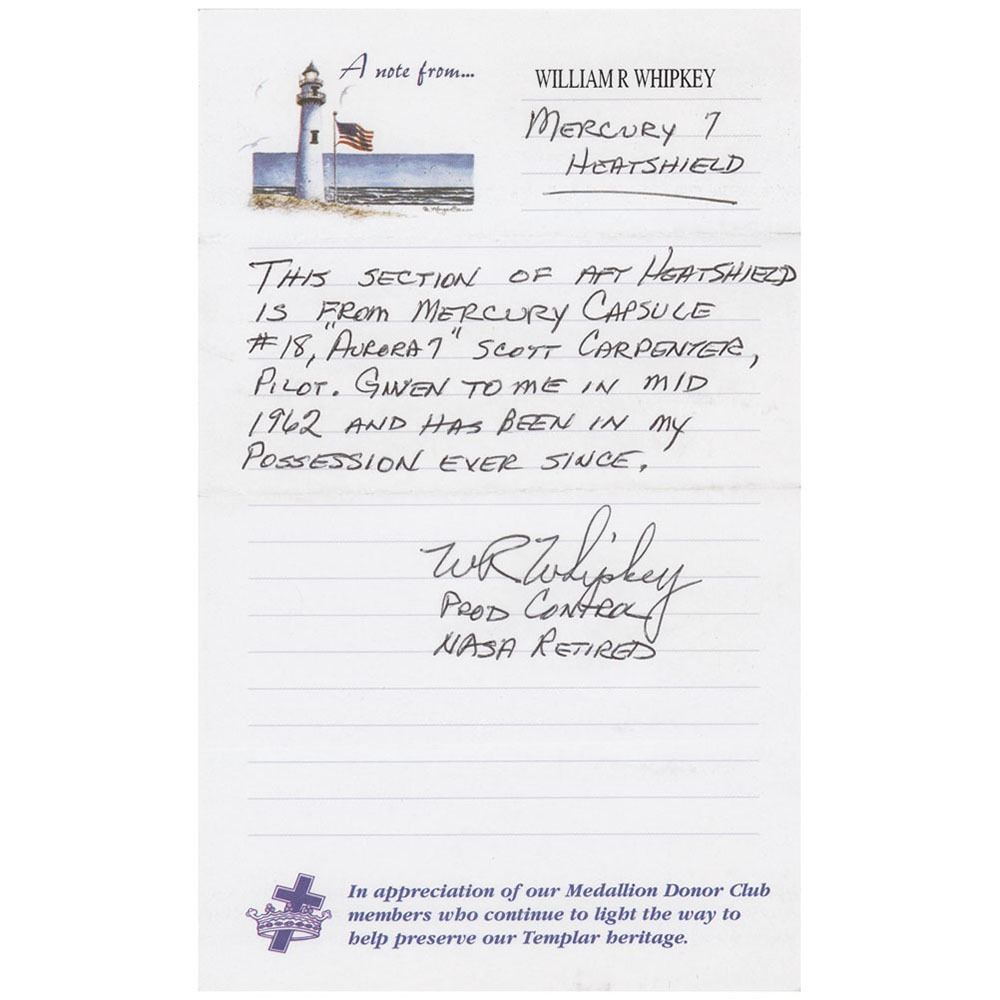 A note from...
WILLIAM R WHIPKEY
MERCURY 7
HEATSHIELD
THIS SECTION OF AFT HEATSHIELD
IS FROM MERCURY CAPSULE
#18, "AURORA 7" SCOTT CARPENTER,
PILOT. GIVEN TO ME IN MID
1962 AND HAS BEEN IN MY
POSSESSION EVER SINCE.
WR Whipkey
PROD CONTROL
NASA RETIRED
In appreciation of our Medallion Donor Club
members who continue to light the way to
help preserve our Templar heritage.